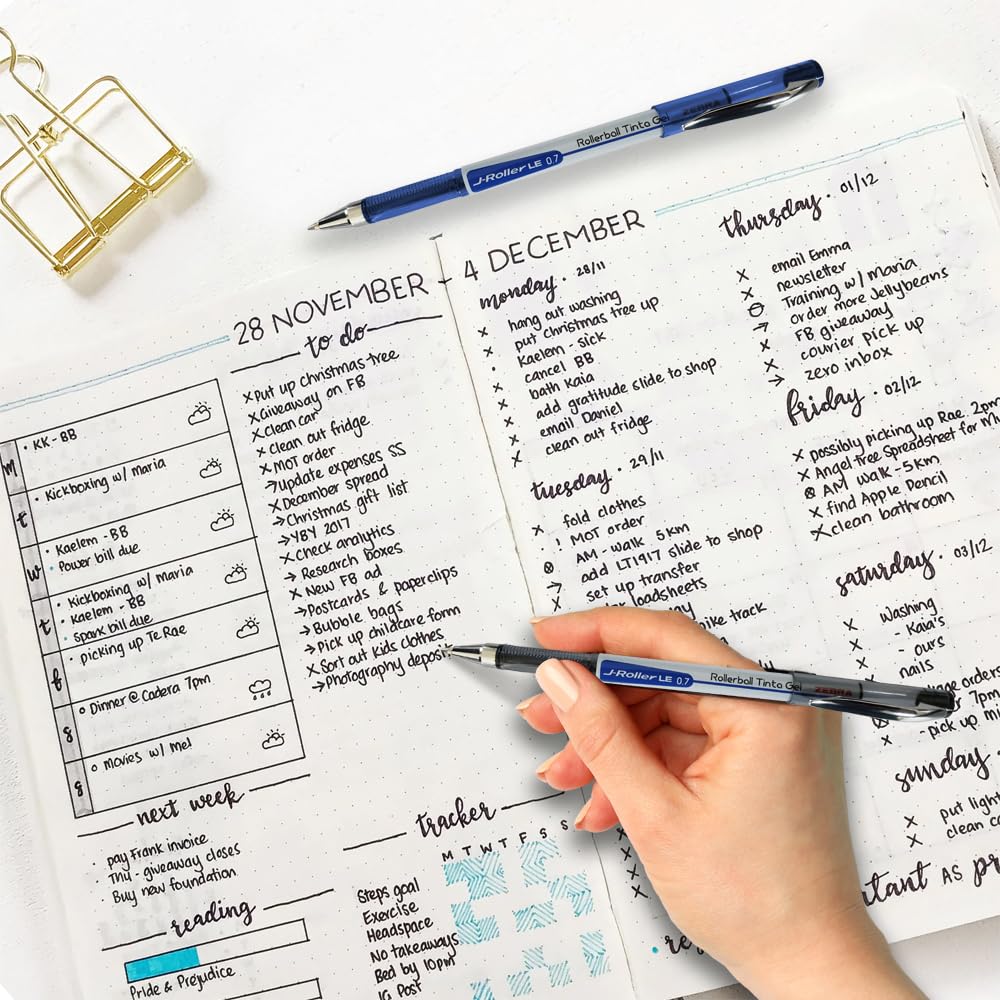 ZEBRA
Rollerball Tinta Gel
J-Roller LE 0.7
28 NOVEMBER - 4 DECEMBER
m
• KK - BB
t
• Kickboxing w/ maria
w
• Kaelem - BB
• Power bill due
t
• Kickboxing w/ maria
• Kaelem - BB
• Spark bill due
f
• picking up Te Rae
s
o Dinner @ Cadera 7pm
s
o movies w/ Mel
to do
x Put up christmas tree
x Giveaway on FB
x Clean car
x clean out fridge
x MOT order
→ update expenses SS
x December spread
→ Christmas gift list
→ YBY 2017
x Check analytics
→ Research boxes
x New FB ad
→ Postcards & paperclips
→ Bubble bags
→ Pick up childcare form
x Sort out kids clothes
→ Photography deposit
next week
• pay Frank invoice
• Thu - giveaway closes
• Buy new foundation
reading
Pride & Prejudice
tracker
M T W T F S S
Steps goal
Exercise
Headspace
No takeaways
Bed by 10pm
IG Post
monday • 28/11
x hang out washing
x put christmas tree up
• Kaelem - sick
x cancel BB
x bath Kaia
x add gratitude slide to shop
x email Daniel
x clean out fridge
tuesday • 29/11
x fold clothes
• ! MOT order
⊗ AM - walk 5km
→ add LT1917 slide to shop
x set up transfer
loadsheets
bike track
J-Roller LE 0.7
Rollerball Tinta Gel
ZEBRA
thursday • 01/12
x email Emma
x newsletter
Training w/ maria
→ order more Jellybeans
x FB giveaway
x courier pick up
→ zero inbox
friday • 02/12
x possibly picking up Rae 2pm
x Angel tree spreadsheet for
⊗ AM walk - 5km
x find Apple Pencil
x clean bathroom
saturday • 03/12
x washing
x - Kaia's
x - ours
nails
orders
7pm
x - pick up
sunday •
x put light
x clean
AS